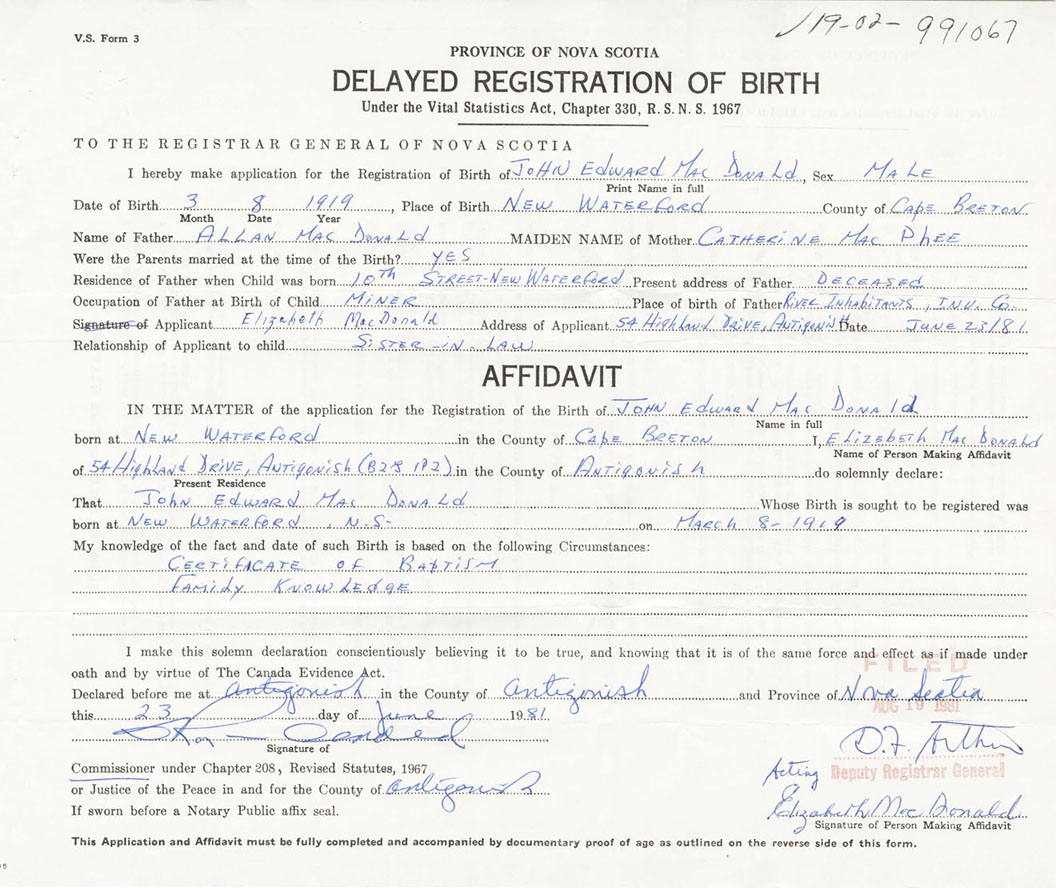 V.S. Form 3
19-02-991067
PROVINCE OF NOVA SCOTIA
DELAYED REGISTRATION OF BIRTH
Under the Vital Statistics Act, Chapter 330, R.S.N.S. 1967
TO THE REGISTRAR GENERAL OF NOVA SCOTIA
I hereby make application for the Registration of Birth of JOHN EDWARD MAC DONALD, Sex MALE
Print Name in full
Date of Birth 3 8 1919, Place of Birth NEW WATERFORD County of CAPE BRETON
Month Date Year
Name of Father ALLAN MAC DONALD MAIDEN NAME of Mother CATHERINE MAC PHEE
Were the Parents married at the time of the Birth? YES
Residence of Father when Child was born 10th STREET-NEW WATERFORD Present address of Father DECEASED
Occupation of Father at Birth of Child MINER Place of birth of Father RIVER INHABITANTS, INV. Co.
Signature of Applicant Elizabeth MacDonald Address of Applicant 54 Highland Drive, Antigonish Date JUNE 23/81
Relationship of Applicant to child SISTER-IN-LAW
AFFIDAVIT
IN THE MATTER of the application for the Registration of the Birth of JOHN EDWARD MAC DONALD
Name in full
born at NEW WATERFORD in the County of CAPE BRETON I, ELIZEBETH MAC DONALD
Name of Person Making Affidavit
of 54 Highland Drive, Antigonish (B2G 1P2) in the County of ANTIGONISH do solemnly declare:
Present Residence
That JOHN EDWARD MAC DONALD Whose Birth is sought to be registered was
born at NEW WATERFORD, N.S- on MARCH 8-1919
My knowledge of the fact and date of such Birth is based on the following Circumstances:
CERTIFICATE OF BAPTISM
FAMILY KNOWLEDGE
I make this solemn declaration conscientiously believing it to be true, and knowing that it is of the same force and effect as if made under
oath and by virtue of The Canada Evidence Act.
FILED
Declared before me at Antigonish in the County of Antigonish and Province of Nova Scotia
AUG 19 1981
this 23 day of June 1981
Signature of
D.F. Arthur
Commissioner under Chapter 208, Revised Statutes, 1967
Acting Deputy Registrar General
or Justice of the Peace in and for the County of Antigonish
Elizabeth MacDonald
If sworn before a Notary Public affix seal.
Signature of Person Making Affidavit
This Application and Affidavit must be fully completed and accompanied by documentary proof of age as outlined on the reverse side of this form.